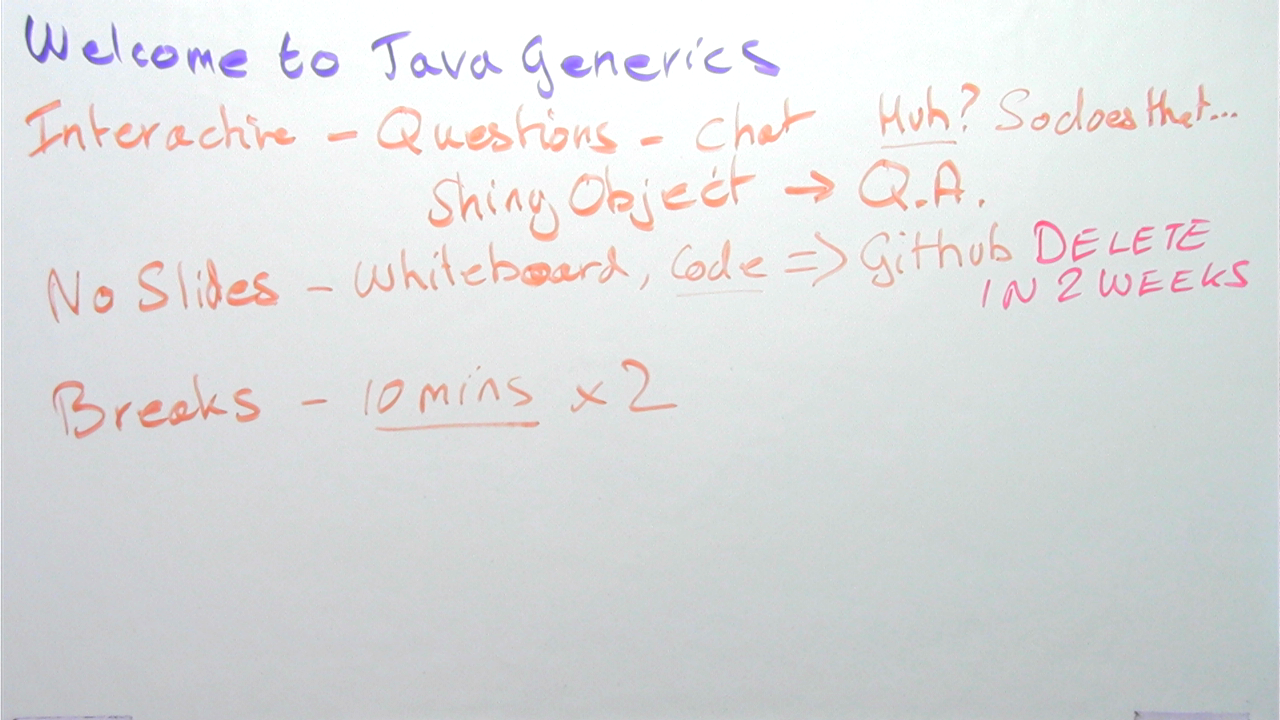 Welcome to Java Generics
Interactive - Questions - Chat Huh? So does that...
Shiny Object → Q.A.
No Slides - Whiteboard, Code => Github DELETE
IN 2 WEEKS
Breaks - 10 mins x 2